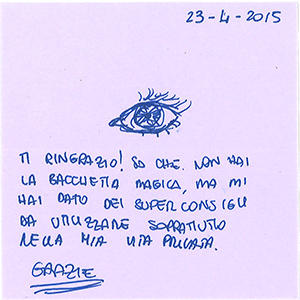 23-4-2015
TI RINGRAZIO! SO CHE NON HAI
LA BACCHETTA MAGICA, MA MI
HAI DATO DEI SUPER CONSIGLI
DA UTILIZZARE SOPRATUTTO
NELLA MIA VITA PRIVATA.
GRAZIE